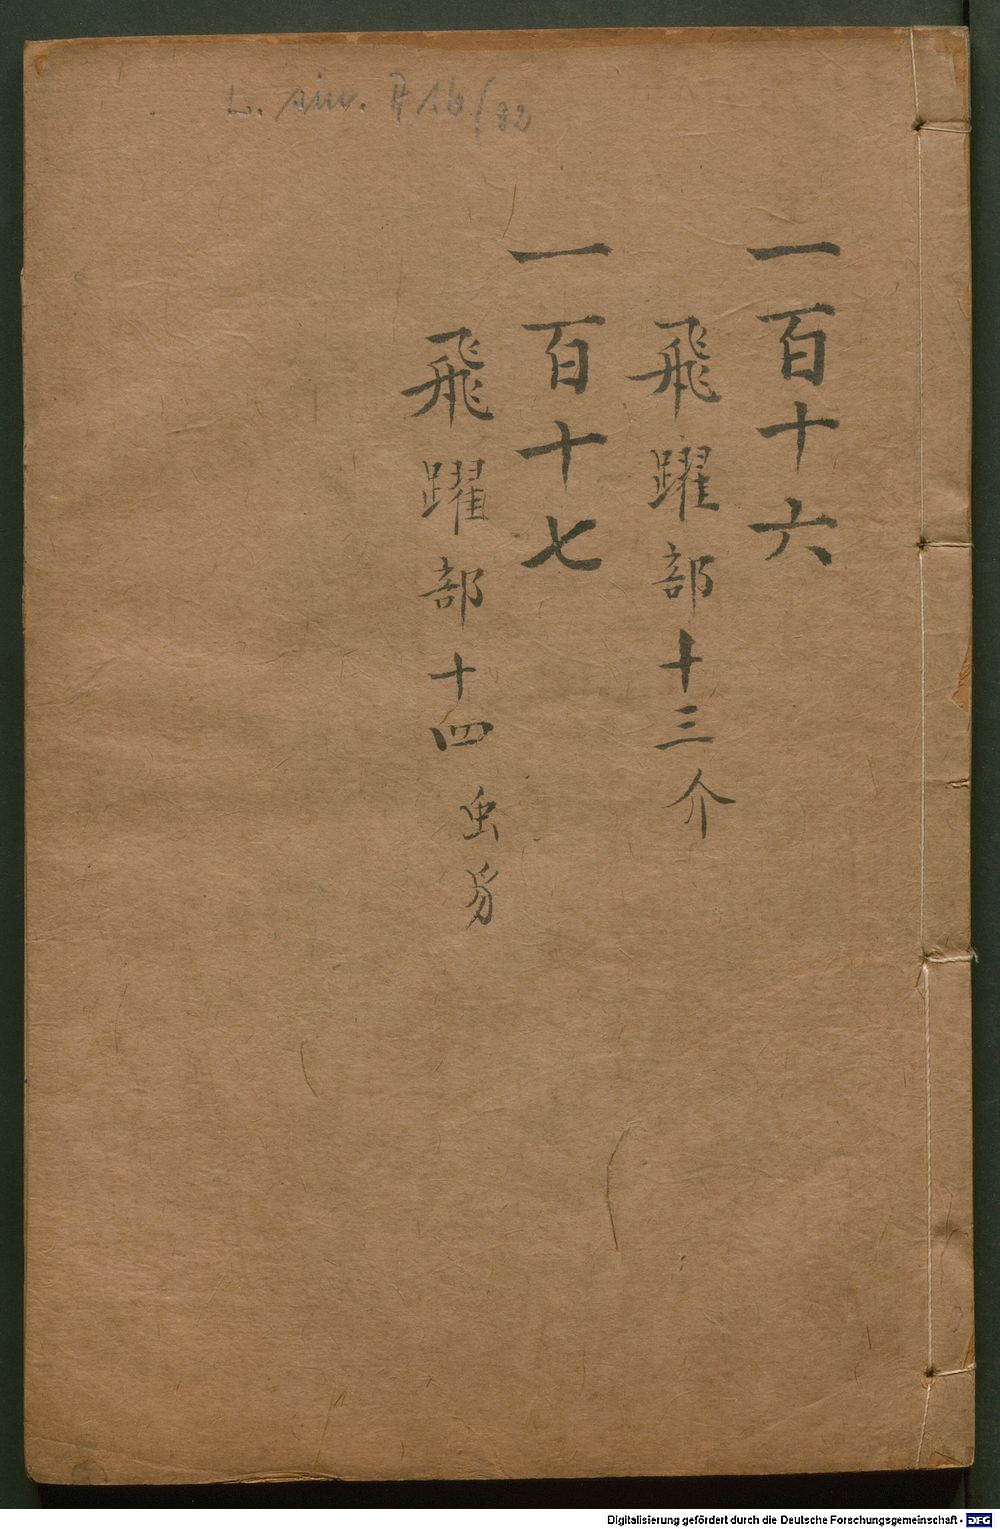 L. sin. A 16/32
一百十六
飛躍部十三介
一百十七
飛躍部十四虫豸
Digitalisierung gefördert durch die Deutsche Forschungsgemeinschaft - DFG